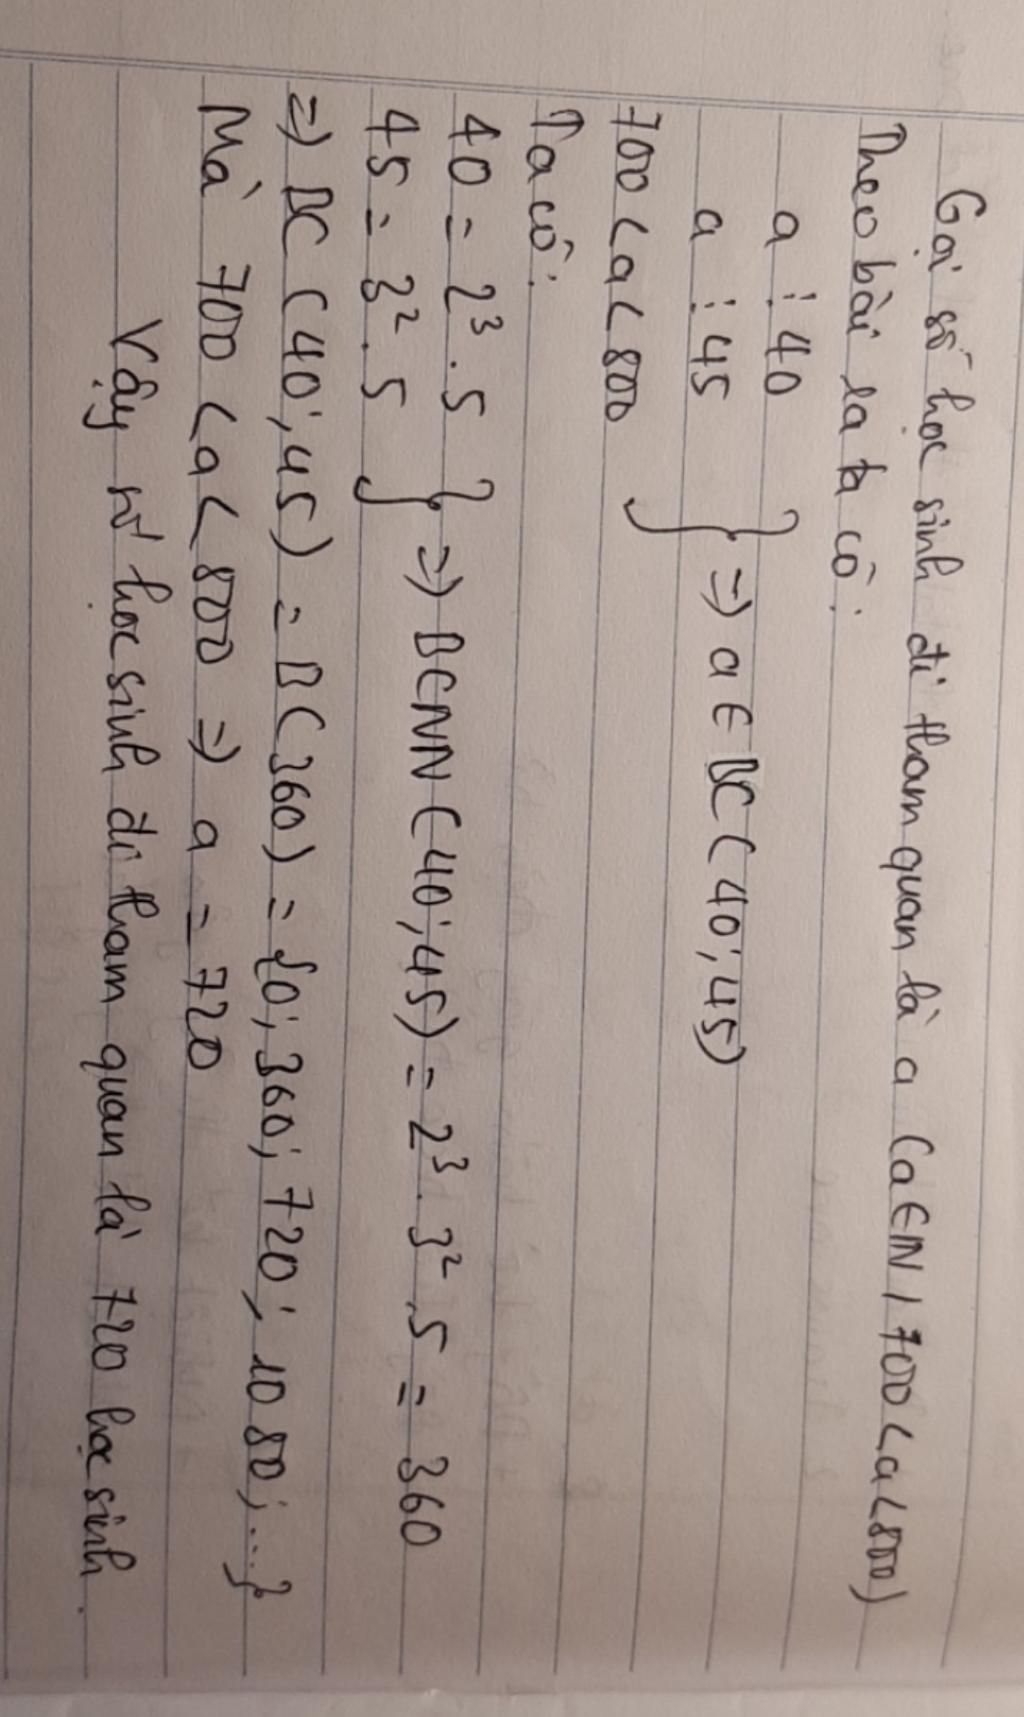 Gọi số học sinh đi tham quan là a (a∈N, 700<a<800)
Theo bài ra ta có:
a ⋮ 40
a ⋮ 45 } => a ∈ BC(40;45)
700<a<800
Ta có:
40 = 2³.5
45 = 3².5 } => BCNN(40;45) = 2³.3².5 = 360
=> BC(40;45) = B(360) = {0; 360; 720; 1080;...}
Mà 700<a<800 => a = 720
Vậy số học sinh đi tham quan là 720 học sinh.